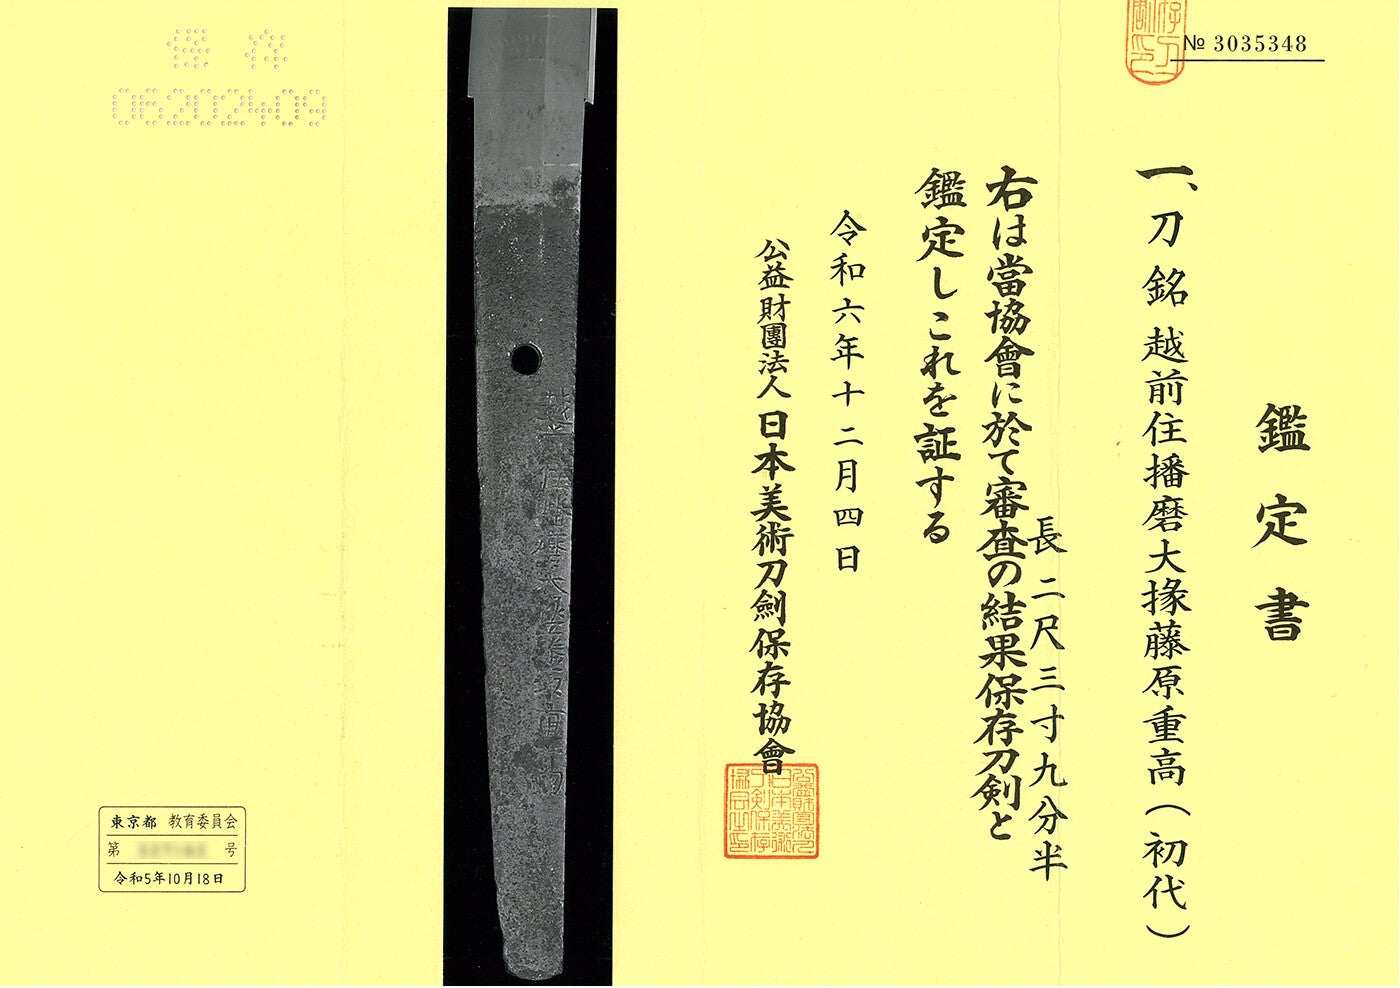 № 3035348
鑑定書
一、刀 銘 越前住播磨大掾藤原重高(初代)
長 二尺三寸九分半
右は當協會に於て審査の結果保存刀剣と
鑑定しこれを証する
令和六年十二月四日
公益財團法人 日本美術刀劍保存協會
保存
06202409
東京都 教育委員会
第 号
令和5年10月18日